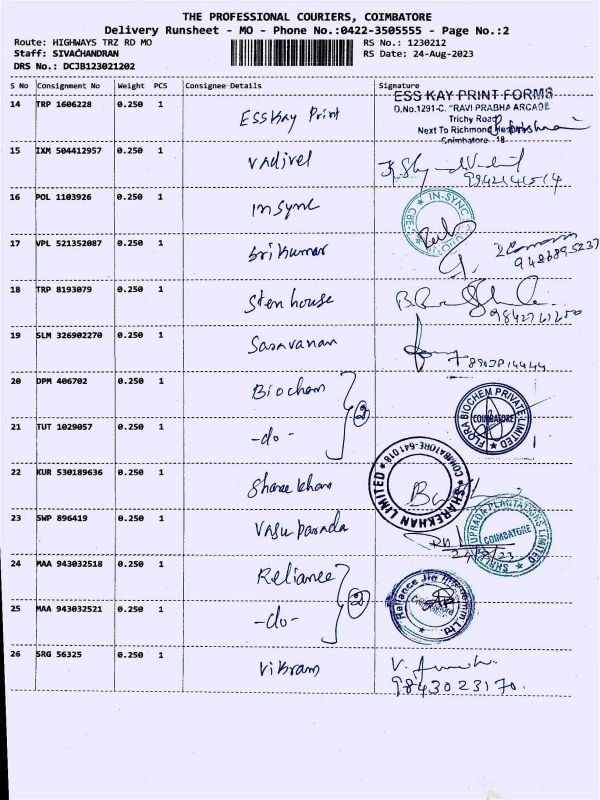 THE PROFESSIONAL COURIERS, COIMBATORE
Delivery Runsheet - MO - Phone No.:0422-3505555 - Page No.:2
Route: HIGHWAYS TRZ RD MO
RS No.: 1230212
Staff: SIVACHANDRAN
RS Date: 24-Aug-2023
DRS No.: DCJB123021202
S No Consignment No Weight PCS Consignee Details Signature
14 TRP 1606228 0.250 1 ESSKay Print
ESS KAY PRINT FORMS
D.No.1291-C, "RAVI PRABHA ARCADE
Trichy Road
Next To Richmond
Coimbatore - 18
15 IXM 504412957 0.250 1 Vadivel
16 POL 1103926 0.250 1 Insync
IN-SYNC
CBE
17 VPL 521352087 0.250 1 Srikumar
9486895237
18 TRP 8193079 0.250 1 Stenhouse
19 SLM 326902270 0.250 1 Saravanan
20 DPM 406702 0.250 1 Biochem
2
FLORA BIOCHEM PRIVATE LIMITED
COIMBATORE
21 TUT 1029057 0.250 1 -do-
22 KUR 530189636 0.250 1 Sharekhan
SHAREKHAN LIMITED
COIMBATORE-641 018
23 SWP 896419 0.250 1 Vasuparada
PLANTATIONS LIMITED
COIMBATORE
24/8/23
24 MAA 943032518 0.250 1 Reliance
2
Reliance Jio Infocomm Ltd.
Coimbatore
25 MAA 943032521 0.250 1 -do-
26 SRG 56325 0.250 1 Vikram
9843023170.